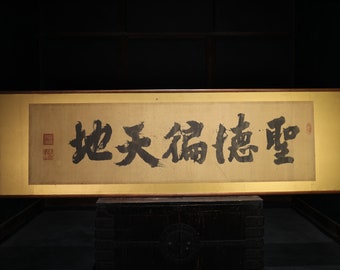 聖德徧天地